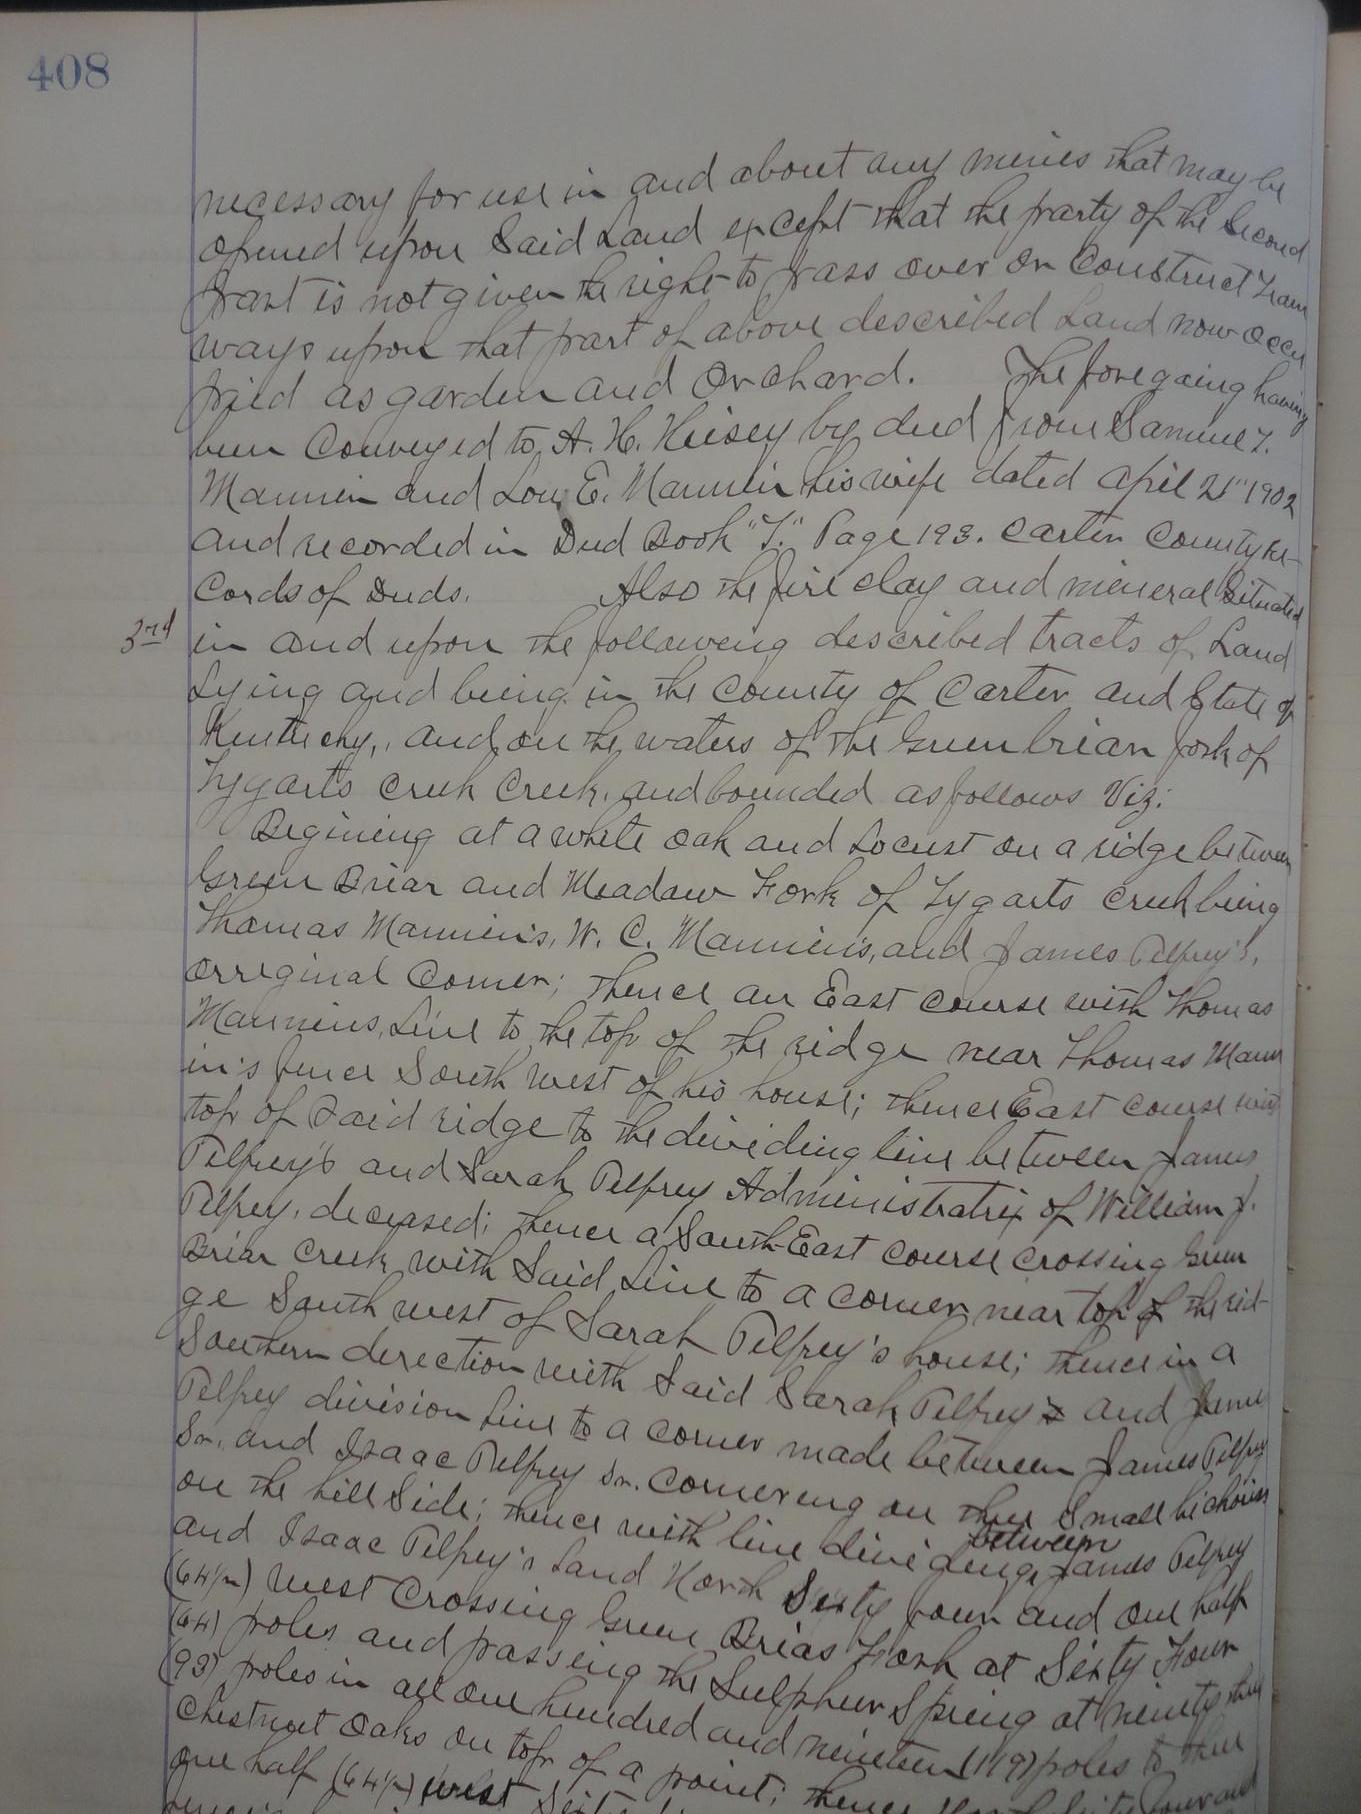 408
necessary for use in and about any mines that may be
opened upon Said Land except that the party of the Second
part is not given the right to pass over or Construct Tram
ways upon that part of above described Land now occu
pied as garden and Orchard. The foregoing having
been Conveyed to A. H. Keisey by deed from Samuel T.
Mannin and Lou E. Mannin his wife dated April 21" 1902
and recorded in Deed Book "T." Page 193. Carter County Re-
Cords of Deeds. Also the fire clay and mineral Situated
3rd in and upon the following described tracts of Land
Lying and being in the County of Carter and State of
Kentucky, and on the waters of the Green brian fork of
Tygarts Creek Creek, and bounded as follows Viz:
Begining at a white Oak and Locust on a ridge between
Green Briar and Meadow Fork of Tygarts Creek being
Thomas Mannin's, W. C. Mannin's, and James Pelfrey's,
orriginal Corner; thence an East Course with Thomas
Mannins, Line to the top of the ridge near Thomas Mann
in's fence South west of his house; thence East Course with
top of Said ridge to the dividing line between James
Pelfrey's and Sarah Pelfrey Administratrix of William J.
Pelfrey, deceased; thence a South-East Course Crossing Green
Briar Creek with Said Line to a corner near top of the rid-
ge South west of Sarah Pelfrey's house; thence in a
Southern direction with Said Sarah Pelfrey's and James
Pelfrey division Line to a corner made between James Pelfrey
Sr. and Isaac Pelfrey Sr. Cornering on three Small hickories
on the hill Side; thence with line dividing between James Pelfrey
and Isaac Pelfrey's Land North Sixty four and one half
(64½) West Crossing Green Brias Fork at Sixty Four
(64) poles and passing the Sulphur Spring at ninety three
(93) poles in all one hundred and nineteen (119) poles to three
Chestnut Oaks on top of a point; thence North Sixty four and
one half (64½) West